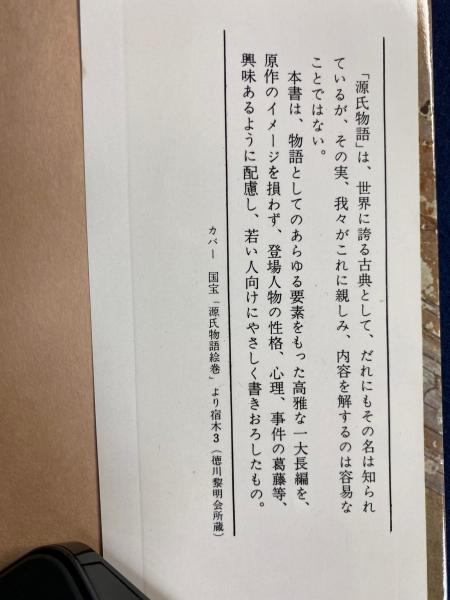 「源氏物語」は、世界に誇る古典として、だれにもその名は知られ
ているが、その実、我々がこれに親しみ、内容を解するのは容易な
ことではない。
本書は、物語としてのあらゆる要素をもった高雅な一大長編を、
原作のイメージを損わず、登場人物の性格、心理、事件の葛藤等、
興味あるように配慮し、若い人向けにやさしく書きおろしたもの。
カバー 国宝「源氏物語絵巻」より宿木3（徳川黎明会所蔵）